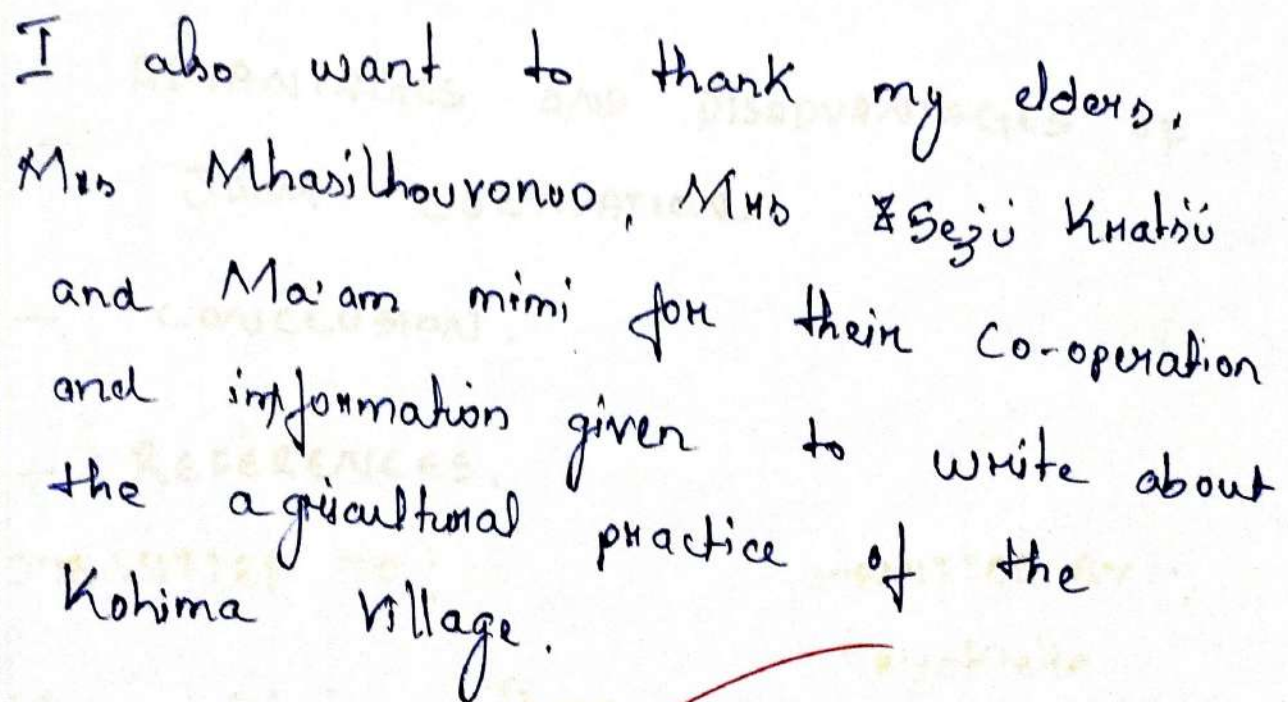 I also want to thank my elders,
Mrs Mhasilhouvonuo, Mrs Sezü Khatsü
and Ma'am mimi for their co-operation
and information given to write about
the agricultural practice of the
Kohima Village.